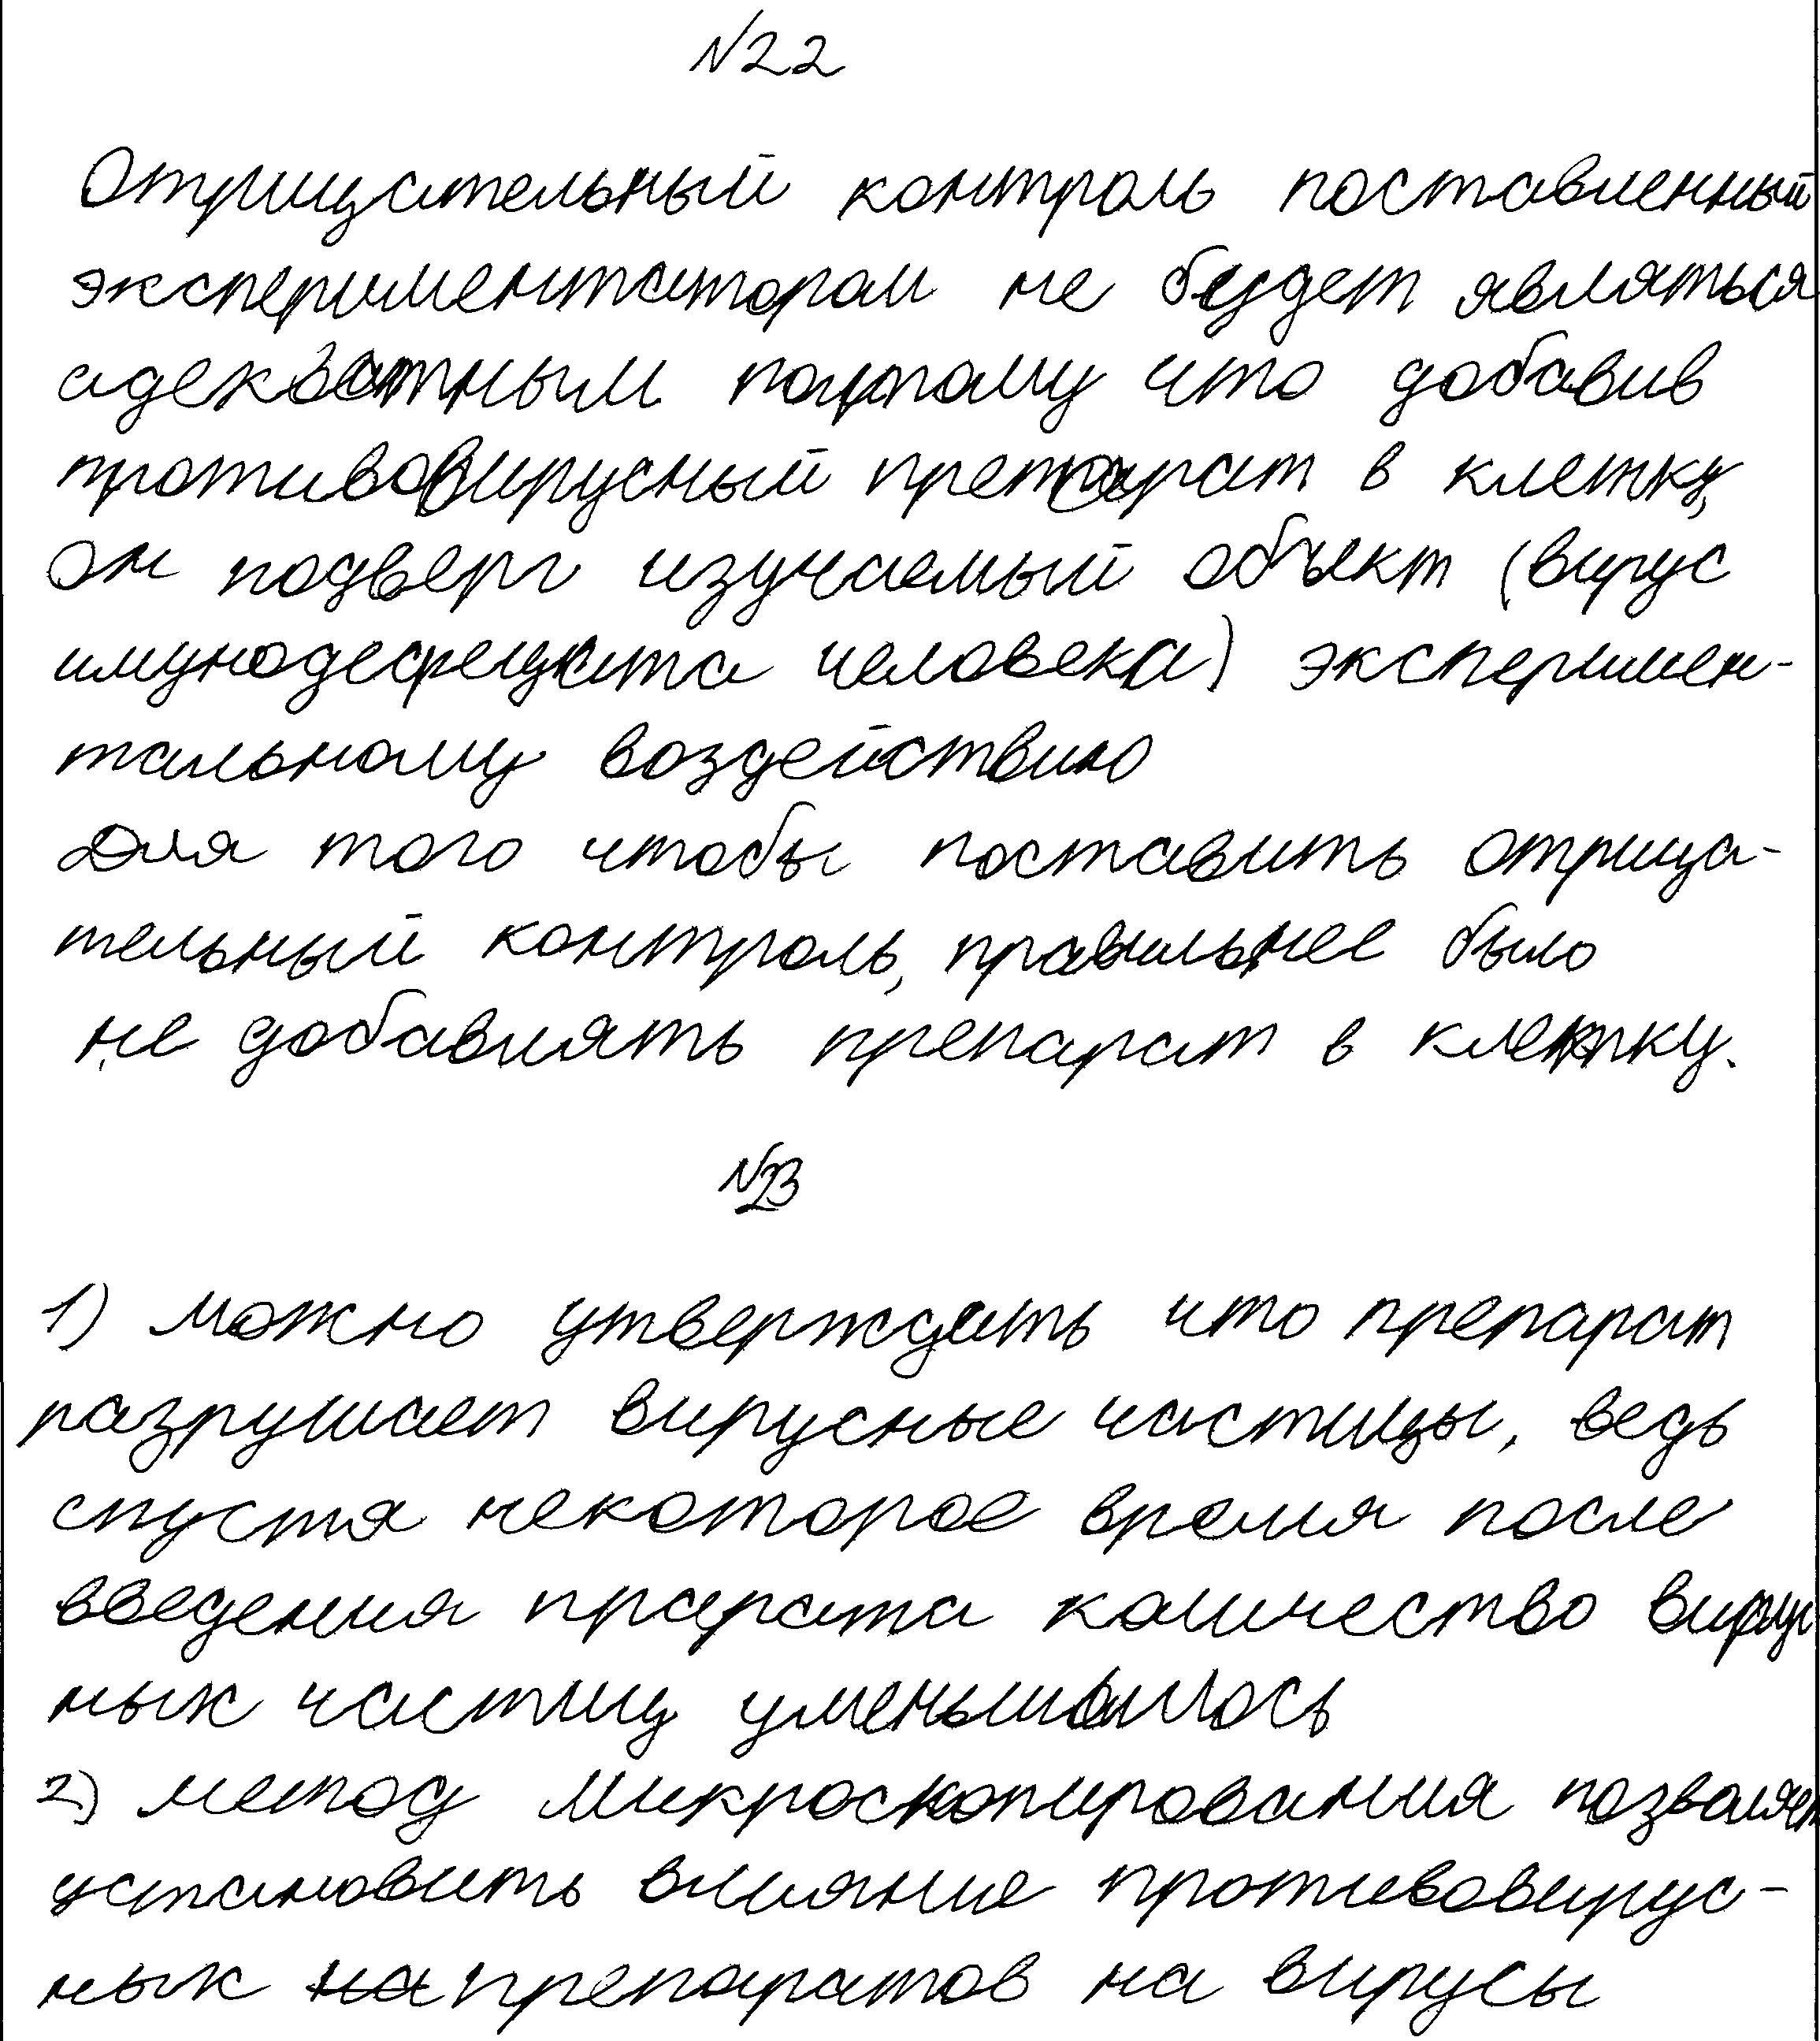 №22
Отрицательный контроль поставленный
экспериментатором не будет являться
адекватным потому что добавив
противовирусный препарат в клетку,
он подверг изучаемый объект (вирус
имунодефецита человека) эксперимен-
тальному воздействию
Для того чтобы поставить отрица-
тельный контроль, правильнее было
не добавлять препарат в клетку.
№23
1) можно утверждать что препарат
разрушает вирусные частицы, ведь
спустя некоторое время после
введения прарата количество вирус
ных частиц уменьшилось
2) метод микроскопирования позволяет
установить влияние противовирус-
ных на препаратов на вирусы